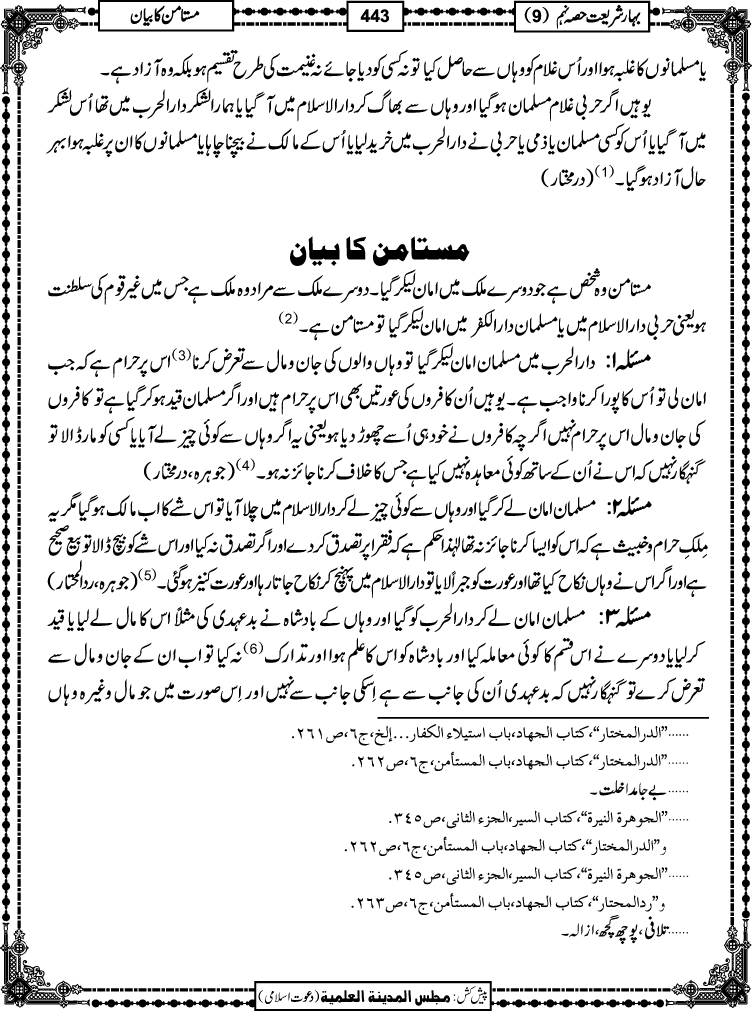 بہار شریعت حصہ نہم (9)
443
مستامن کا بیان
یا مسلمانوں کا غلبہ ہوا اور اُس غلام کو وہاں سے حاصل کیا تو نہ کسی کو دیا جائے نہ غنیمت کی طرح تقسیم ہو بلکہ وہ آزاد ہے۔
یوہیں اگر حربی غلام مسلمان ہوگیا اور وہاں سے بھاگ کر دارالاسلام میں آگیا یا ہمارا لشکر دارالحرب میں تھا اُس لشکر
میں آگیا یا اُس کو کسی مسلمان یا ذمی یا حربی نے دارالحرب میں خرید لیا یا اُس کے مالک نے بیچنا چاہا یا مسلمانوں کا ان پر غلبہ ہوا بہر
حال آزاد ہوگیا۔(1) (درمختار)
مستامن کا بیان
مستامن وہ شخص ہے جو دوسرے ملک میں امان لیکر گیا۔ دوسرے ملک سے مراد وہ ملک ہے جس میں غیر قوم کی سلطنت
ہو یعنی حربی دارالاسلام میں یا مسلمان دارالکفر میں امان لیکر گیا تو مستامن ہے۔(2)
مسئلہ ۱: دارالحرب میں مسلمان امان لیکر گیا تو وہاں والوں کی جان و مال سے تعرض کرنا(3) اس پر حرام ہے کہ جب
امان لی تو اُس کا پورا کرنا واجب ہے۔ یوہیں اُن کافروں کی عورتیں بھی اس پر حرام ہیں اور اگر مسلمان قید ہو کر گیا ہے تو کافروں
کی جان و مال اس پر حرام نہیں اگرچہ کافروں نے خود ہی اُسے چھوڑ دیا ہو یعنی یہ اگر وہاں سے کوئی چیز لے آیا یا کسی کو مار ڈالا تو
گنہگار نہیں کہ اس نے اُن کے ساتھ کوئی معاہدہ نہیں کیا ہے جس کا خلاف کرنا جائز نہ ہو۔(4) (جوہرہ، درمختار)
مسئلہ ۲: مسلمان امان لے کر گیا اور وہاں سے کوئی چیز لے کر دارالاسلام میں چلا آیا تو اس شے کا اب مالک ہوگیا مگر یہ
مِلک حرام و خبیث ہے کہ اس کو ایسا کرنا جائز نہ تھا لہٰذا حکم ہے کہ فقرا پر تصدق کردے اور اگر تصدق نہ کیا اور اس شے کو بیچ ڈالا تو بیع صحیح
ہے اور اگر اس نے وہاں نکاح کیا تھا اور عورت کو جبراً لایا تو دارالاسلام میں پہنچ کر نکاح جاتا رہا اور عورت کنیز ہوگئی۔(5) (جوہرہ، ردالمحتار)
مسئلہ ۳: مسلمان امان لے کر دارالحرب کو گیا اور وہاں کے بادشاہ نے بدعہدی کی مثلاً اس کا مال لے لیا یا قید
کرلیا یا دوسرے نے اس قسم کا کوئی معاملہ کیا اور بادشاہ کو اس کا علم ہوا اور تدارک(6) نہ کیا تو اب ان کے جان و مال سے
تعرض کرے تو گنہگار نہیں کہ بدعہدی اُن کی جانب سے ہے اِسکی جانب سے نہیں اور اِس صورت میں جو مال وغیرہ وہاں
......”الدرالمختار“، کتاب الجهاد، باب استيلاء الكفار...إلخ، ج٦، ص٢٦١.
......”الدرالمختار“، كتاب الجهاد، باب المستأمن، ج٦، ص٢٦٢.
......بے جا مداخلت۔
......”الجوهرة النيرة“، كتاب السير، الجزء الثانى، ص٣٤٥.
و”الدرالمختار“، كتاب الجهاد، باب المستأمن، ج٦، ص٢٦٢.
......”الجوهرة النيرة“، كتاب السير، الجزء الثانى، ص٣٤٥.
و”ردالمحتار“، كتاب الجهاد، باب المستأمن، ج٦، ص٢٦٣.
......تلافی، پوچھ گچھ، ازالہ۔
پیش کش: مجلس المدينة العلمية (دعوت اسلامی)